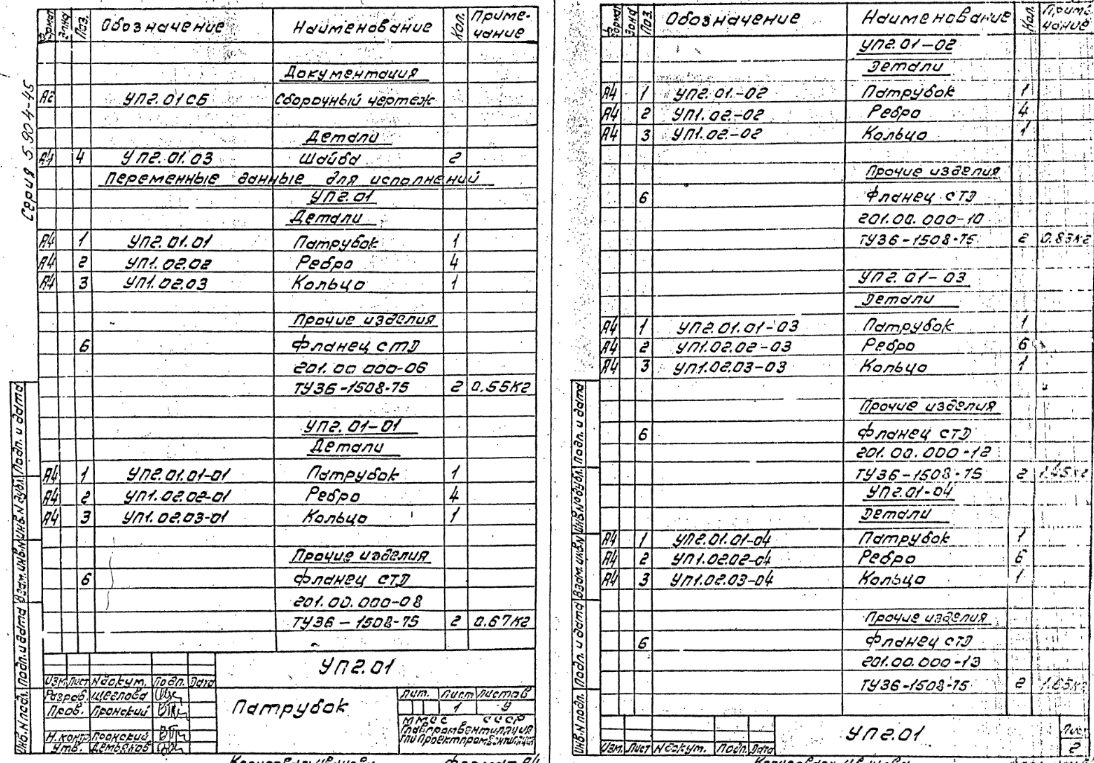 Серия 5.904-45
Формат Зона Поз. Обозначение Наименование Кол. Приме-чание
Документация
А2 УП2.01СБ Сборочный чертеж
Детали
А4 4 УП2.01.03 Шайба 2
Переменные данные для исполнений
УП2.01
Детали
А4 1 УП2.01.01 Патрубок 1
А4 2 УП1.02.02 Ребро 4
А4 3 УП1.02.03 Кольцо 1
Прочие изделия
6 Фланец СТД
201.00.000-06
ТУ36-1508-75 2 0.55кг
УП2.01-01
Детали
А4 1 УП2.01.01-01 Патрубок 1
А4 2 УП1.02.02-01 Ребро 4
А4 3 УП1.02.03-01 Кольцо 1
Прочие изделия
6 Фланец СТД
201.00.000-08
ТУ36-1508-75 2 0.67кг
Инв.N подл. Подп. и дата Взам.инв.N Инв.N дубл. Подп. и дата
УП2.01
Изм. Лист N докум. Подп. Дата
Разраб. Щеглова
Пров. Пронский
Н.контр. Пронский
Утв.
Патрубок
Лит. Лист Листов
1 9
ММСС СССР
Главпромвентиляция
Формат А4
Формат Зона Поз. Обозначение Наименование Кол. Приме-чание
УП2.01-02
Детали
А4 1 УП2.01.-02 Патрубок 1
А4 2 УП1.02.-02 Ребро 4
А4 3 УП1.02.-02 Кольцо 1
Прочие изделия
6 Фланец СТД
201.00.000-10
ТУ36-1508-75 2 0.83кг
УП2.01-03
Детали
А4 1 УП2.01.01-03 Патрубок 1
А4 2 УП1.02.02-03 Ребро 6
А4 3 УП1.02.03-03 Кольцо 1
Прочие изделия
6 Фланец СТД
201.00.000-12
ТУ36-1508-75 2
УП2.01-04
Детали
А4 1 УП2.01.01-04 Патрубок 1
А4 2 УП1.02.02-04 Ребро 6
А4 3 УП1.02.03-04 Кольцо 1
Прочие изделия
6 Фланец СТД
201.00.000-13
ТУ36-1508-75 2
Инв.N подл. Подп. и дата Взам.инв.N Инв.N дубл. Подп. и дата
Изм. Лист N докум. Подп. Дата
УП2.01
Лист
2